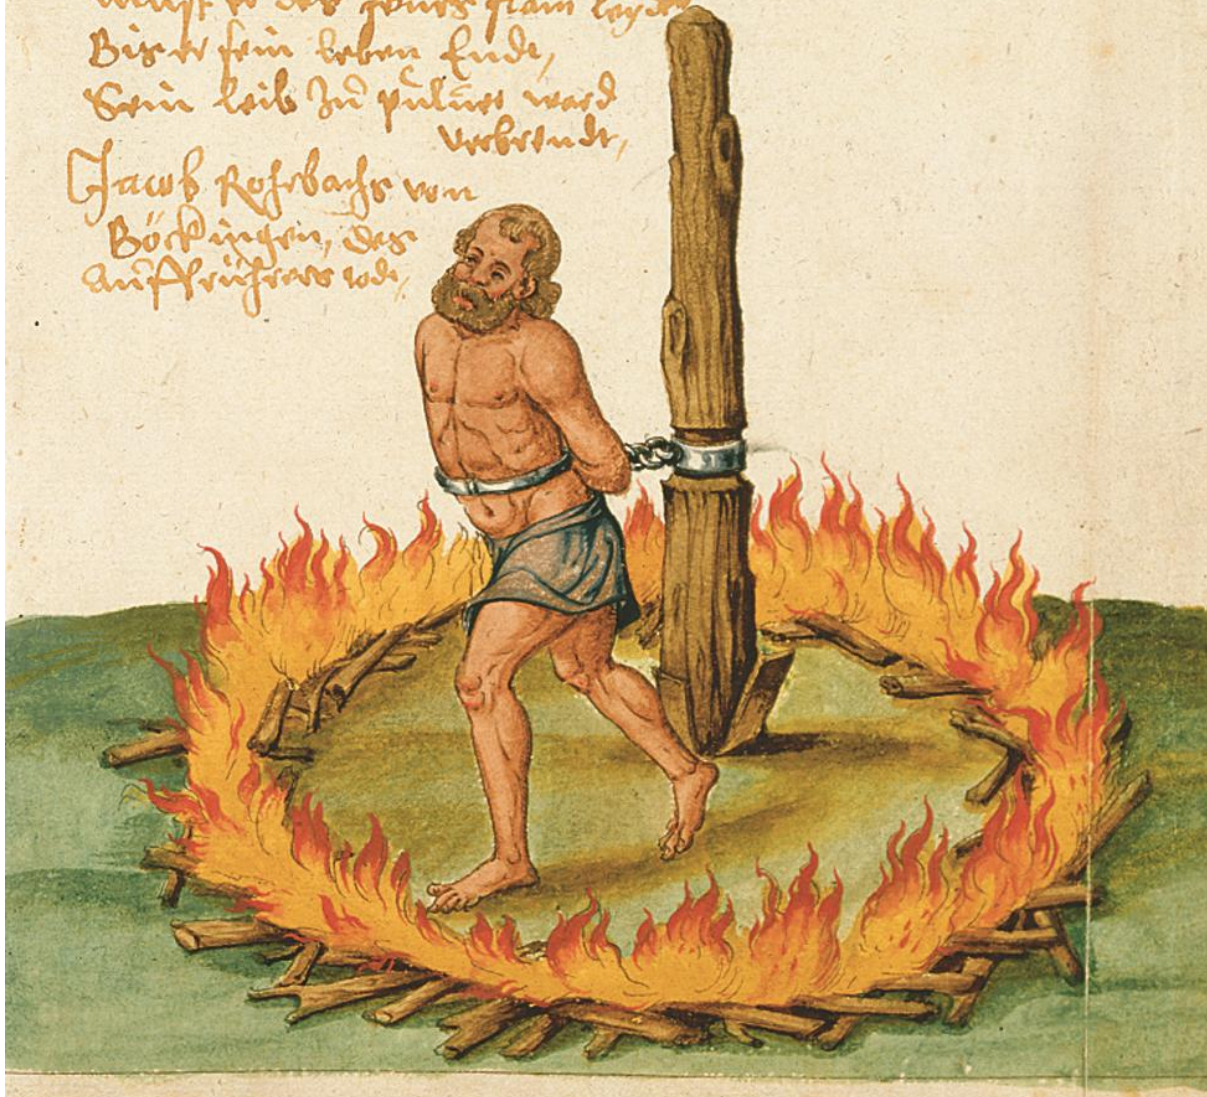 Bis er sein leben Endt,
Sein leib zů půlůer ward
verbrendt,
Jacob Rohrbachs von
Böckingen, des
Auffrührers todt,